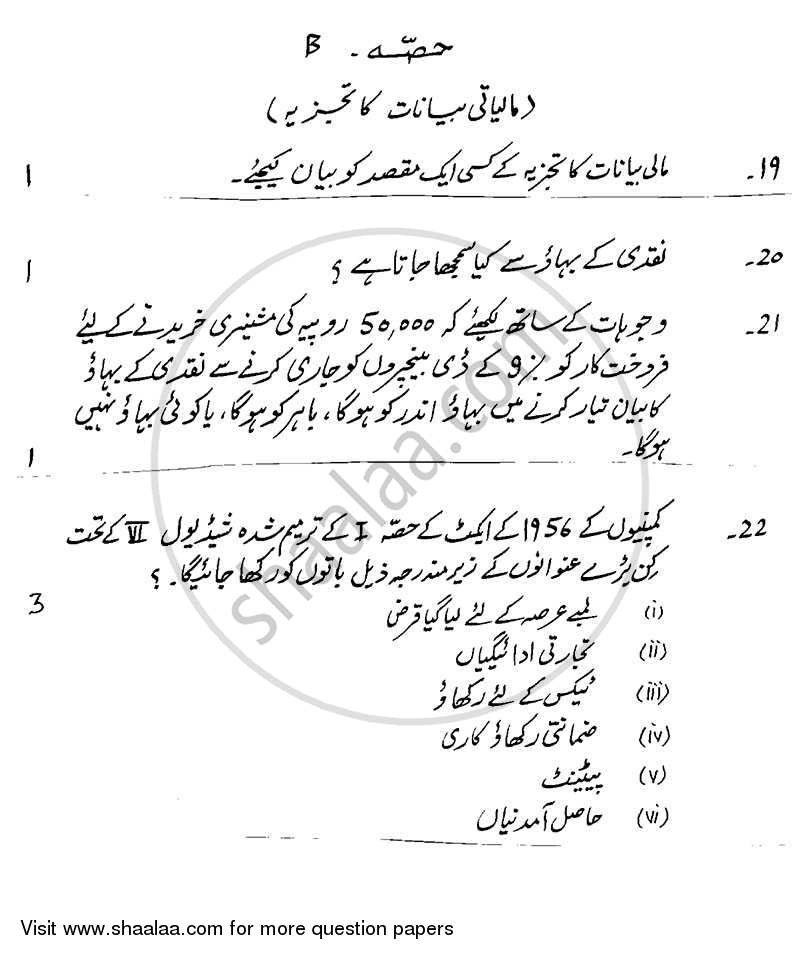 حصّہ - B
(مالیاتی بیانات کا تجزیہ)
19- مالی بیانات کا تجزیہ کے کسی ایک مقصد کو بیان کیجئے۔ 1
20- نقدی کے بہاؤ سے کیا سمجھا جاتا ہے ؟ 1
21- وجوہات کے ساتھ لکھئے کہ 50,000 روپیہ کی مشنیری خریدنے کے لیئے
فروخت کار کو 9% کے ڈی بینچروں کو جاری کرنے سے نقدی کے بہاؤ
کا بیان تیار کرنے میں بہاؤ اندر کو ہوگا، باہر کو ہوگا، یا کوئی بہاؤ نہیں
ہوگا۔ 1
22- کمپنیوں کے 1956 کے ایکٹ کے حصّہ I کے ترمیم شدہ شیڈیول VI کے تحت
کن بڑے عنوانوں کے زیر مندرجہ ذیل باتوں کو رکھا جائیگا۔ ؟ 3
(i) لمبے عرصہ کے لئے لیا گیا قرض
(ii) تجارتی ادائگیاں
(iii) ٹیکس کے لئے رکھاؤ
(iv) ضمانتی رکھاؤ کاری
(v) پیٹینٹ
(vi) حاصل آمدنیاں
shaalaa.com
Visit www.shaalaa.com for more question papers